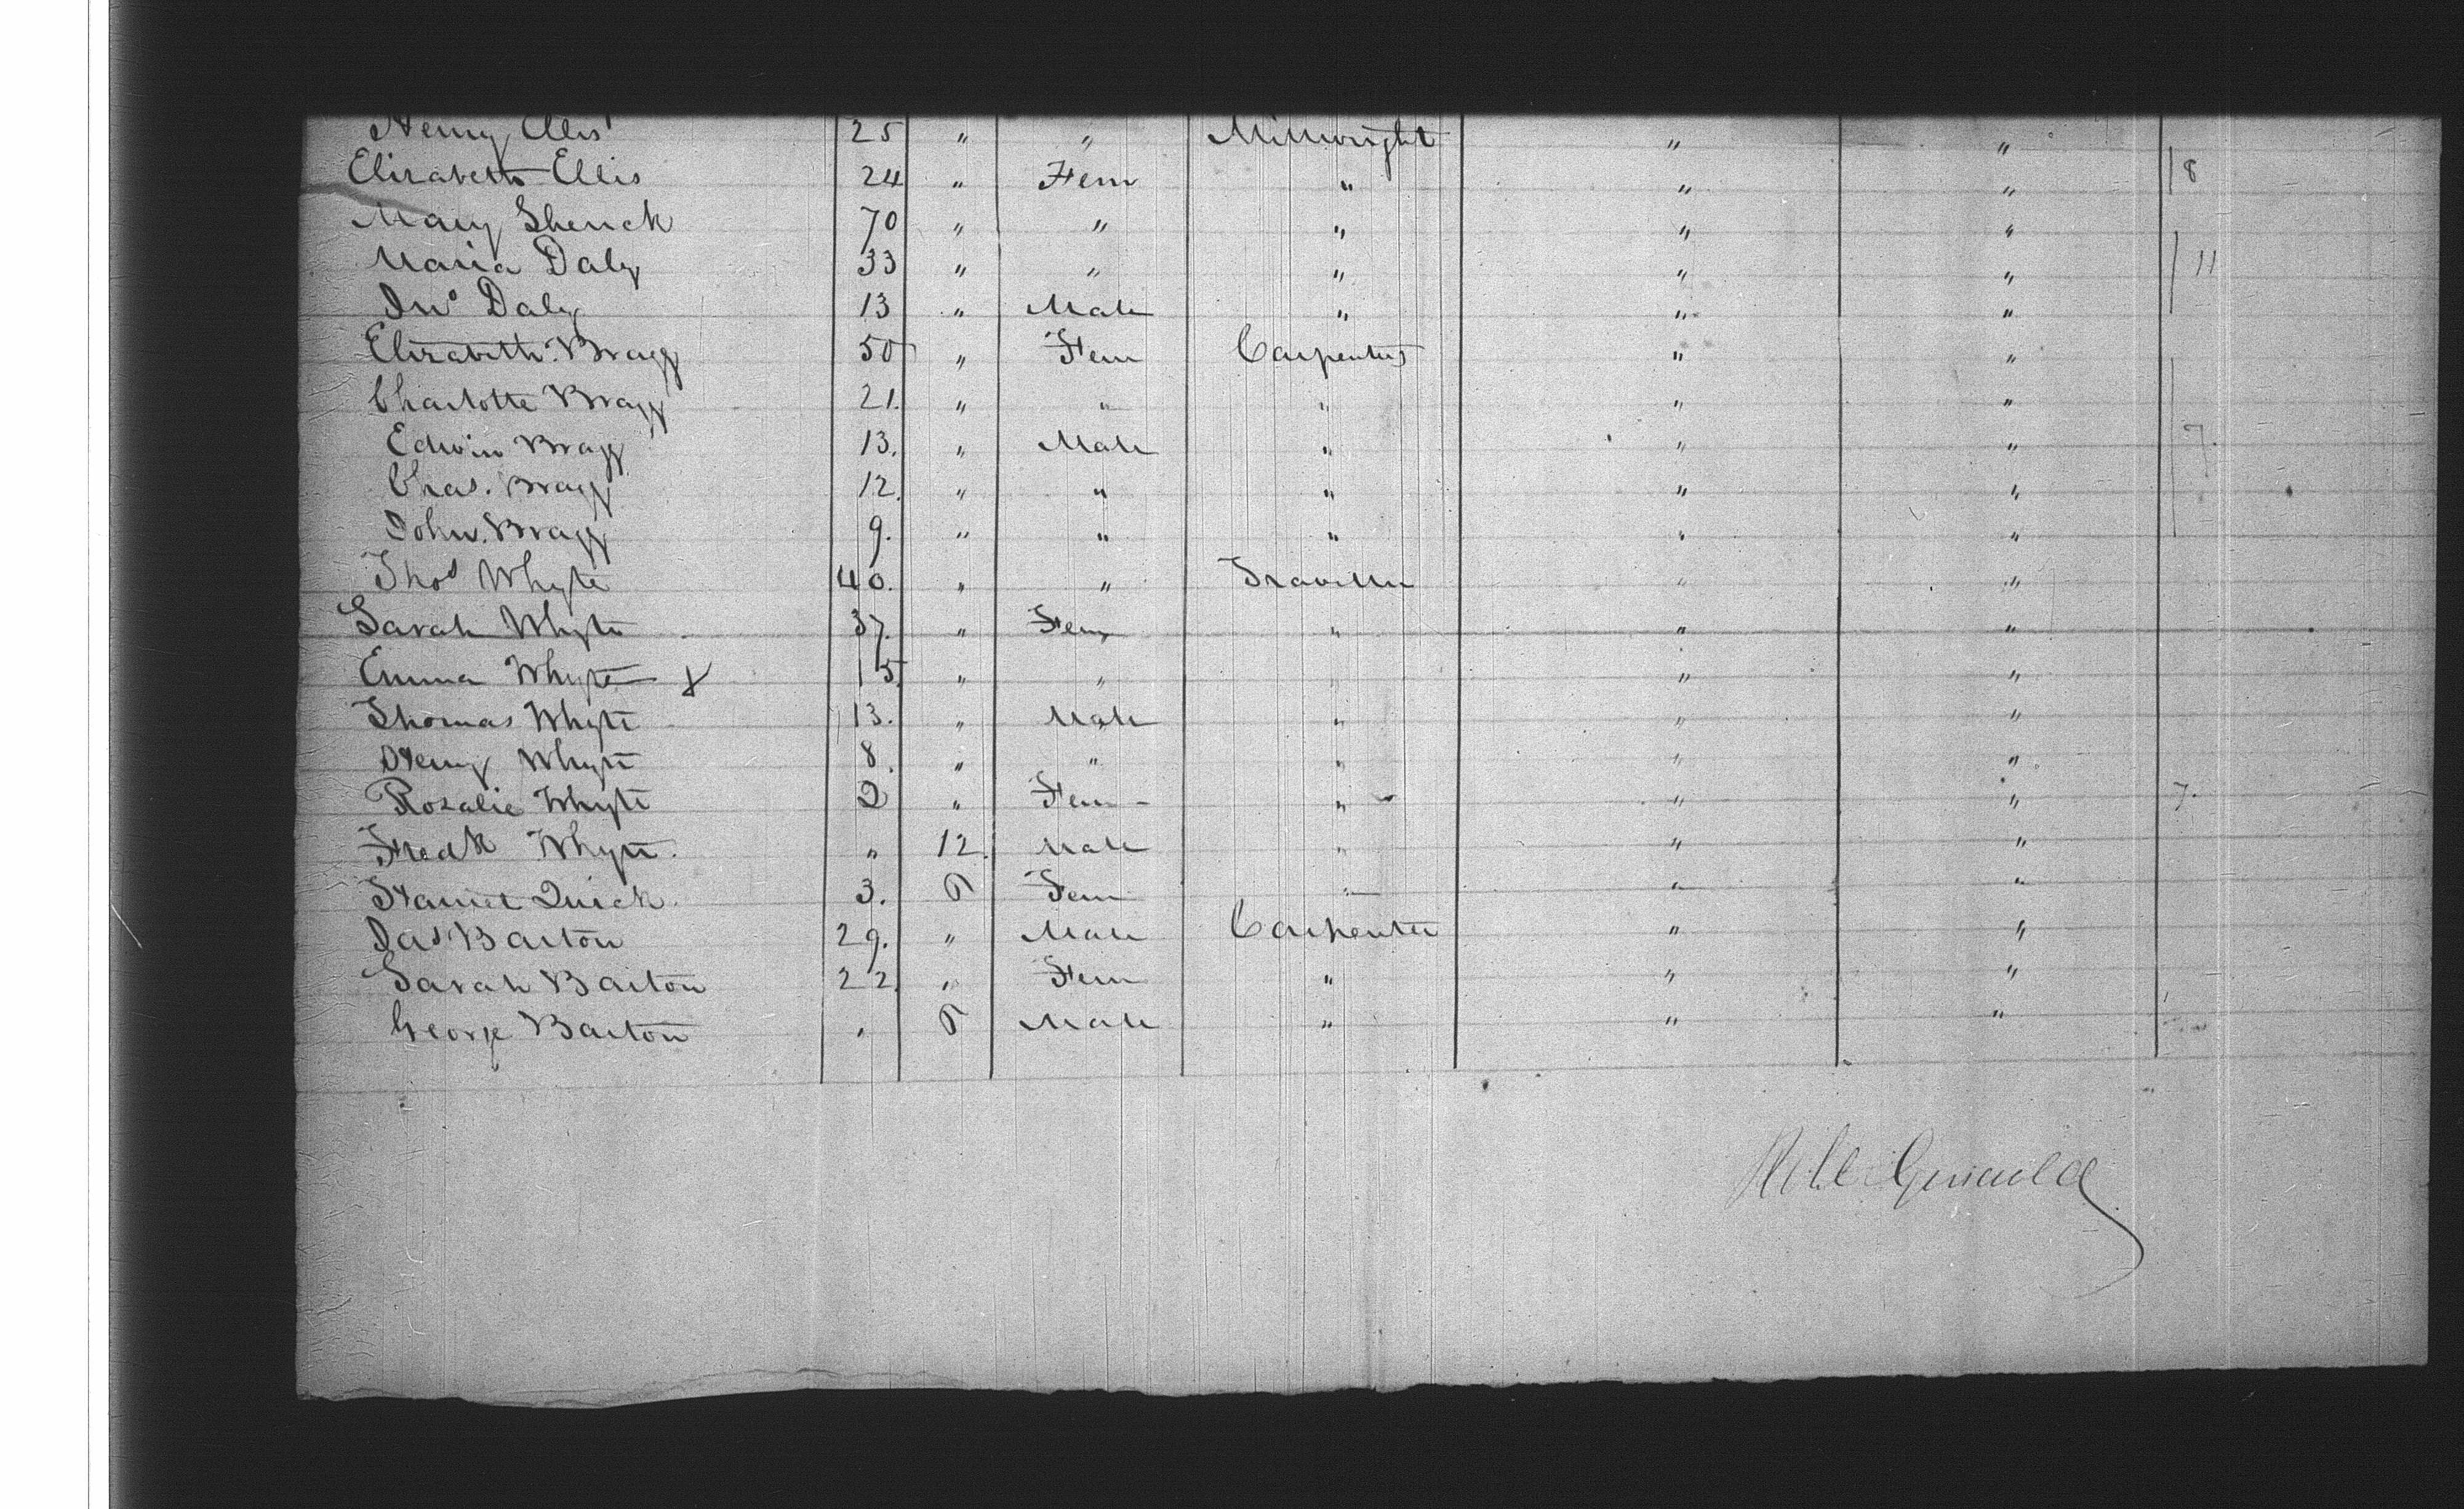 Henry Ellis 25 " " Millwright " "
Elizabeth Ellis 24 " Fem " " " 8
Mary Shenck 70 " " " " "
Maria Daly 33 " " " " " 11
Jno Daly 13 " Male " " "
Elizabeth Bragg 50 " Fem Carpenters " "
Charlotte Bragg 21. " " " " "
Edwin Bragg 13. " Male " " " 7.
Chas. Bragg 12. " " " " "
John. Bragg 9. " " " " "
Thos Whyte 40. " " Traveller " "
Sarah Whyte 37. " Fem " " "
Emma Whyte x 15. " " " " "
Thomas Whyte 13. " Male " " "
Henry Whyte 8. " " " " "
Rozalie Whyte 2 " Fem - " " " 7.
Fredk Whyte. " 12. Male " " "
Harriet Quick. 3. Fem " " "
Jas Barton 29. " Male Carpenter " "
Sarah Barton 22. " Fem " " "
George Barton " Male " " "